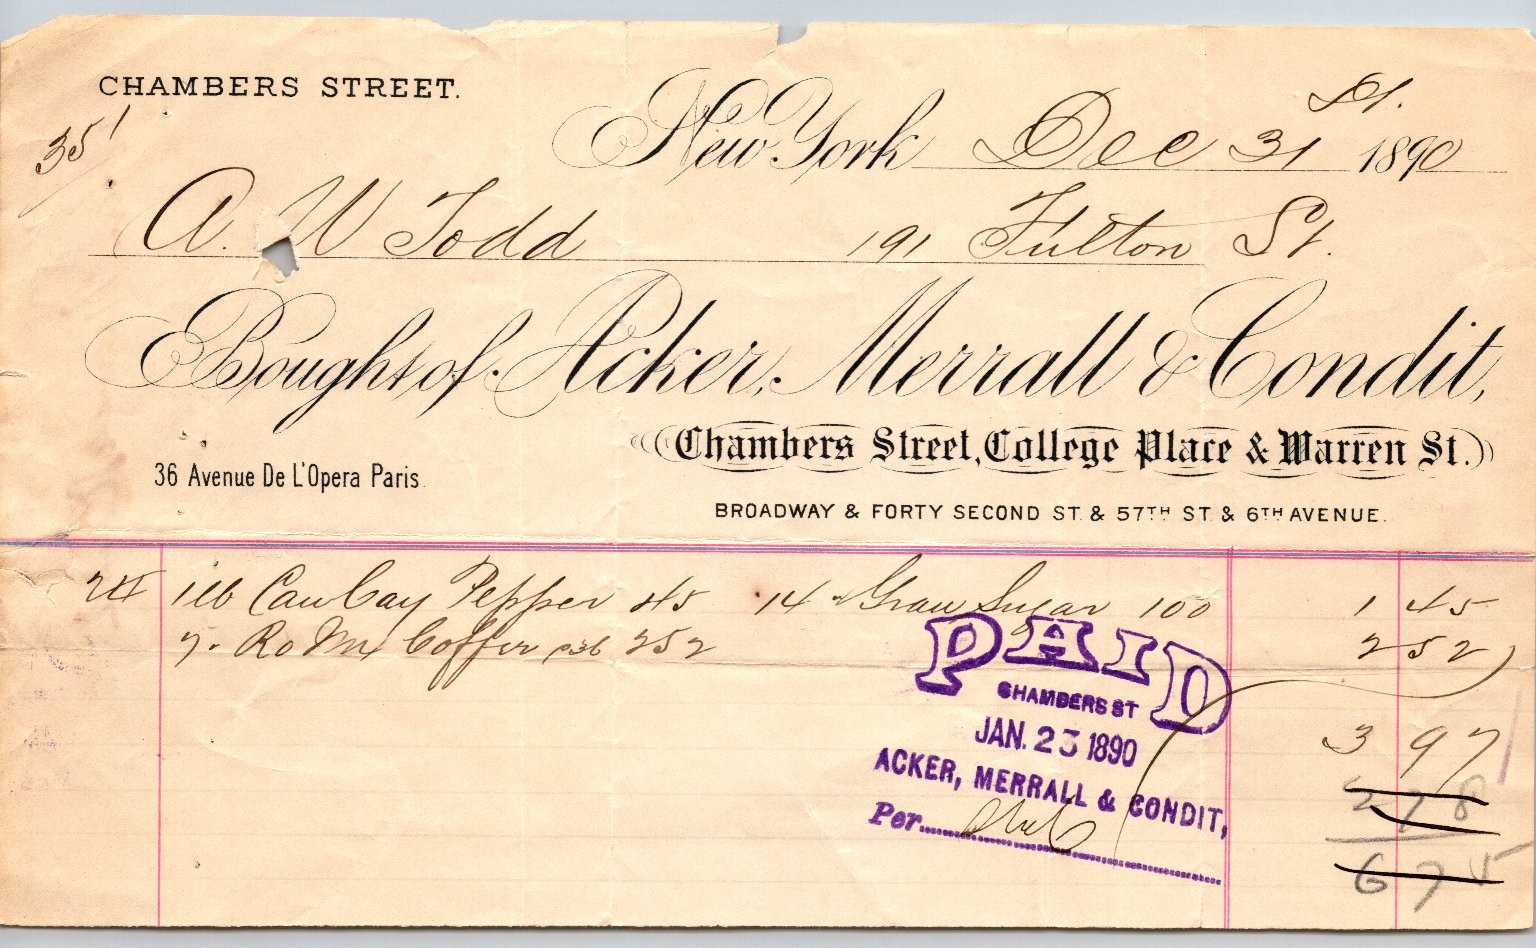 CHAMBERS STREET.
351
New York Dec 31 St. 1890
A. W Todd 191 Fulton St.
Bought of Acker, Merrall & Condit,
Chambers Street, College Place & Warren St.
36 Avenue De L'Opera Paris
BROADWAY & FORTY SECOND ST. & 57TH ST. & 6TH AVENUE.
24 1 lb Pepper 45 14 " Gran Sugar 100 1 45
7 " Coffee 36 252 2 52
PAID
CHAMBERS ST
JAN. 23 1890
3 97
ACKER, MERRALL & CONDIT,
2 78
Per
6 75